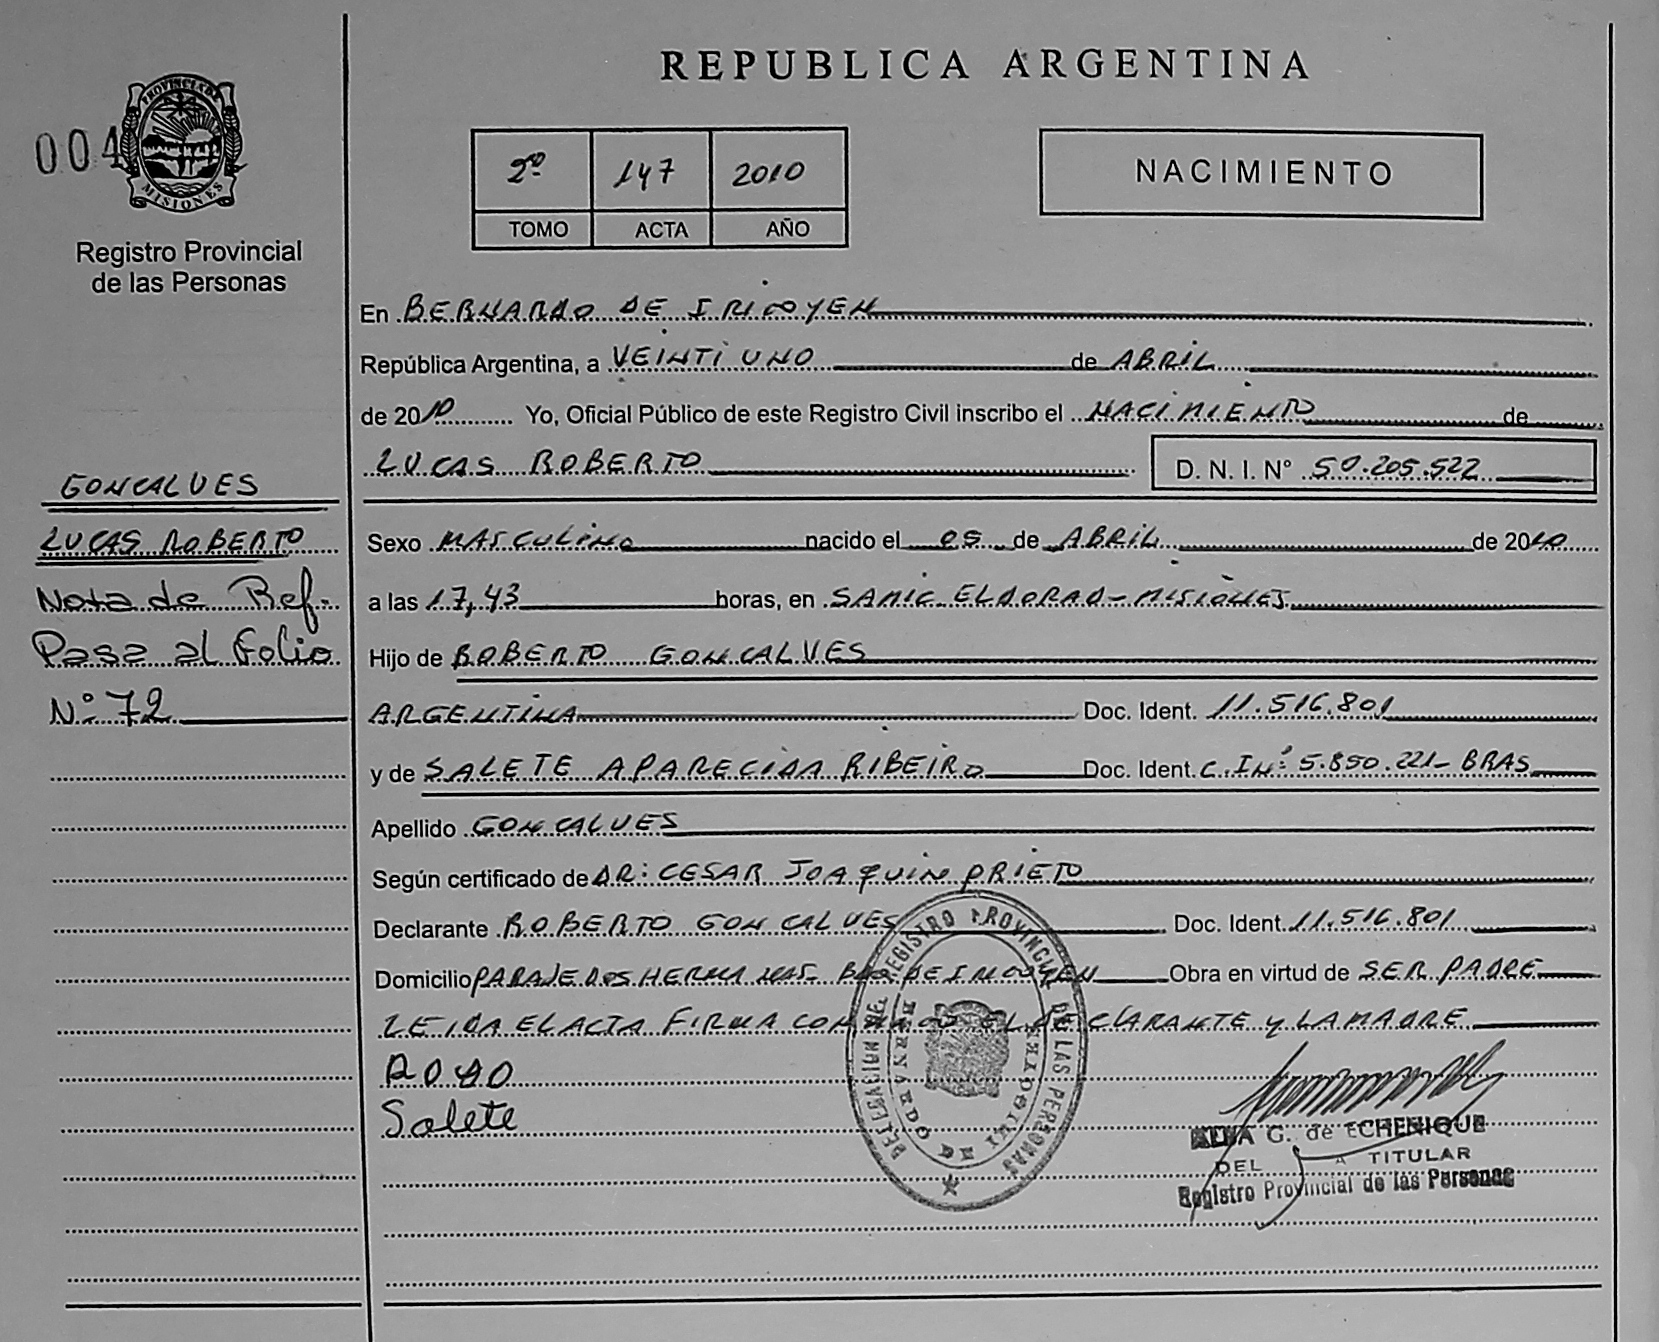 REPUBLICA ARGENTINA
004
PROVINCIA DE MISIONES
Registro Provincial
de las Personas
2º 147 2010
TOMO ACTA AÑO
NACIMIENTO
En BERNARDO DE IRIGOYEN
República Argentina, a VEINTIUNO de ABRIL
de 2010 Yo, Oficial Público de este Registro Civil inscribo el NACIMIENTO de
LUCAS ROBERTO D. N. I. N° 50.205.522
GONCALVES
LUCAS ROBERTO
Nota de Ref.
Pasa al Folio
N° 72
Sexo MASCULINO nacido el 05 de ABRIL de 2010
a las 17,43 horas, en SAMIC ELDORADO-MISIONES
Hijo de ROBERTO GONCALVES
ARGENTINA Doc. Ident. 11.516.801
y de SALETE APARECIDA RIBEIRO Doc. Ident. C.IN: 5.850.221- BRAS
Apellido GONCALVES
Según certificado de DR: CESAR JOAQUIN PRIETO
Declarante ROBERTO GONCALVES Doc. Ident. 11.516.801
Domicilio PARAJE DOS HERMANAS- BDO DE IRIGOYEN Obra en virtud de SER PADRE
LEIDA EL ACTA FIRMA CON EL DECLARANTE Y LA MADRE
Salete
DELEGACION DEL REGISTRO PROVINCIAL DE LAS PERSONAS
BERNARDO DE IRIGOYEN
G. de ECHENIQUE
DEL TITULAR
Registro Provincial de las Personas